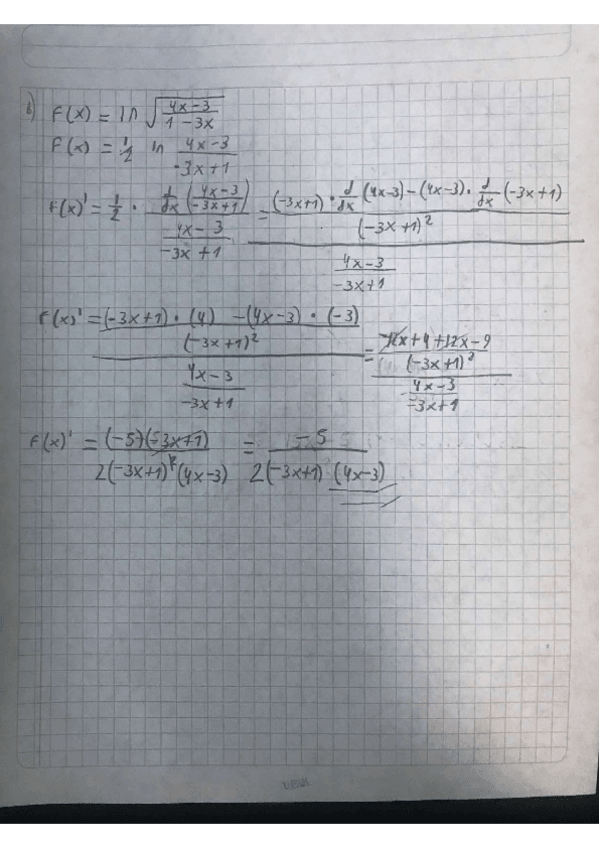 b) F(x) = ln √((4x-3)/(1-3x))
F(x) = 1/2 ln (4x-3)/(-3x+1)
F(x)' = 1/2 · (d/dx ((4x-3)/(-3x+1)))/((4x-3)/(-3x+1)) = (((-3x+1) · d/dx (4x-3) - (4x-3) · d/dx (-3x+1))/((-3x+1)^2))/((4x-3)/(-3x+1))
F(x)' = (((-3x+1) · (4) - (4x-3) · (-3))/((-3x+1)^2))/((4x-3)/(-3x+1)) = ((-12x+4+12x-9)/((-3x+1)^2))/((4x-3)/(-3x+1))
F(x)' = ((-5)(-3x+1))/(2(-3x+1)^2(4x-3)) = (-5)/(2(-3x+1)(4x-3))